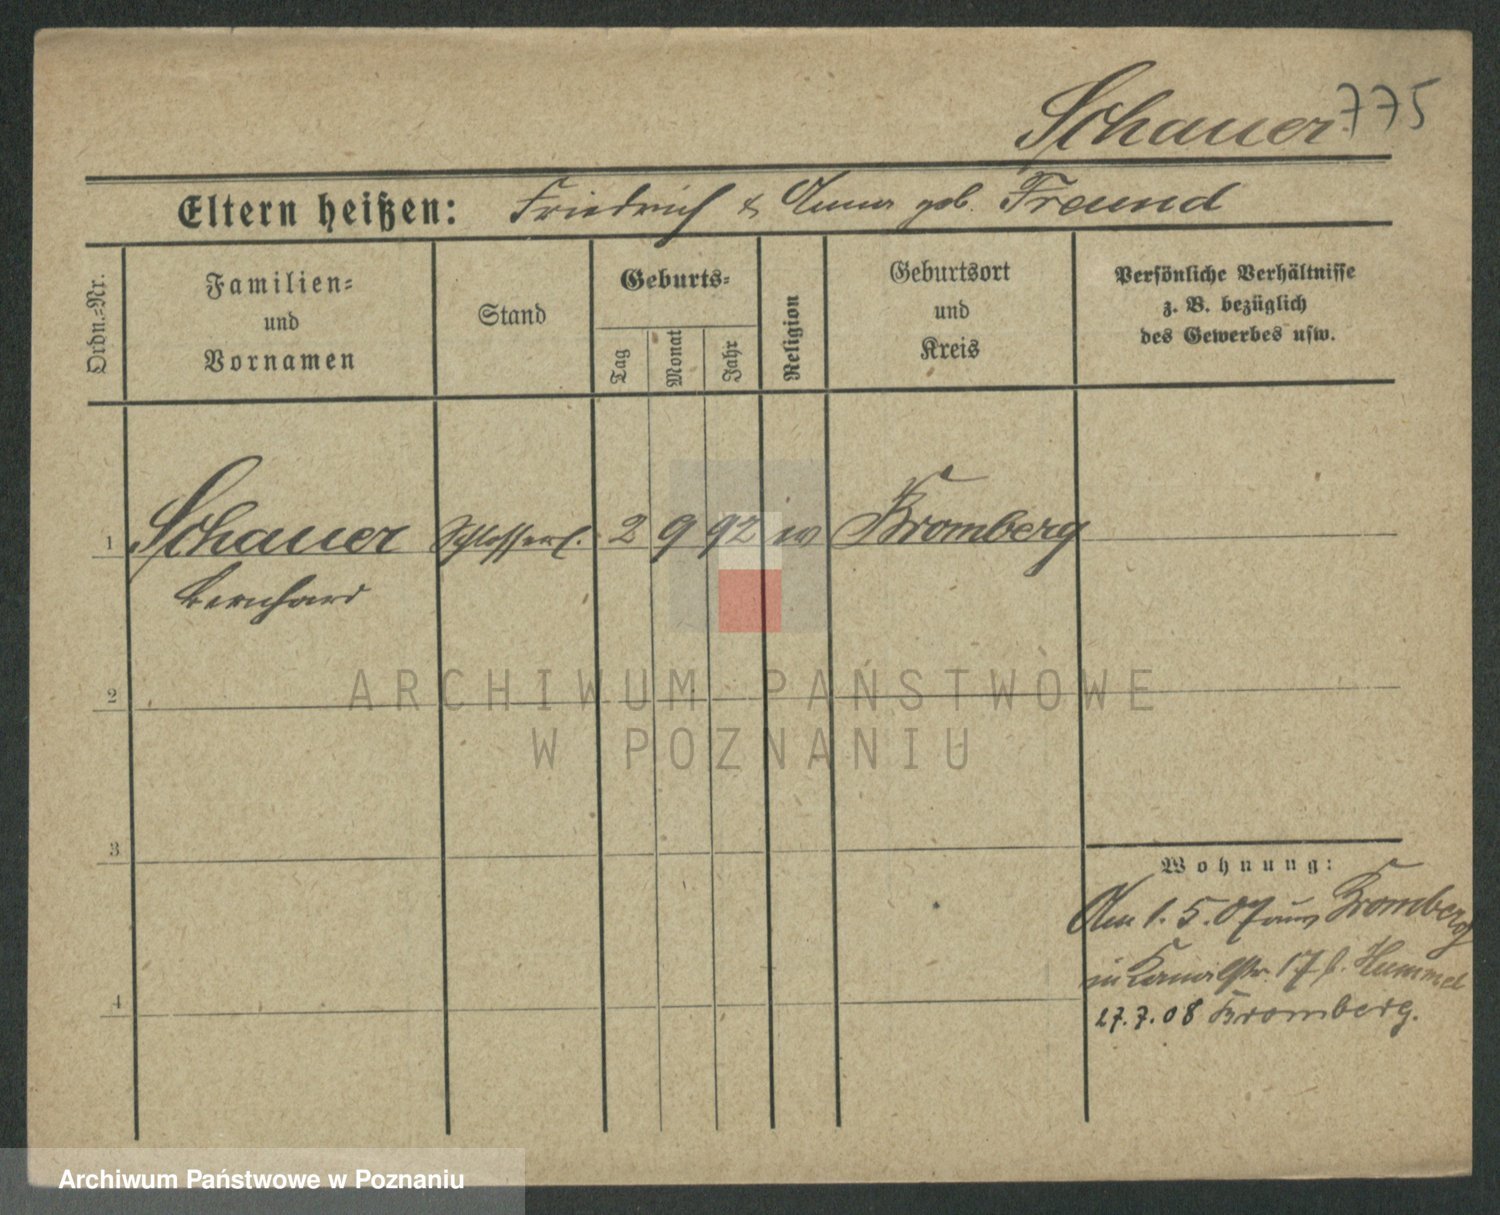 Schauer 775
Eltern heißen: Friedrich & Anna geb. Freund
Ordn.=Nr.
Familien=
und
Vornamen
Stand
Geburts=
Tag
Monat
Jahr
Religion
Geburtsort
und
Kreis
Persönliche Verhältnisse
z. B. bezüglich
des Gewerbes usw.
1 Schauer Schlosserl. 2 9 92 ev Bromberg
Bernhard
2
ARCHIWUM PAŃSTWOWE
W POZNANIU
3
Wohnung:
Am 1. 5. 07 aus Bromberg
in Kanalstr. 17 b. Hummel
4
27. 7. 08 Bromberg.
Archiwum Państwowe w Poznaniu